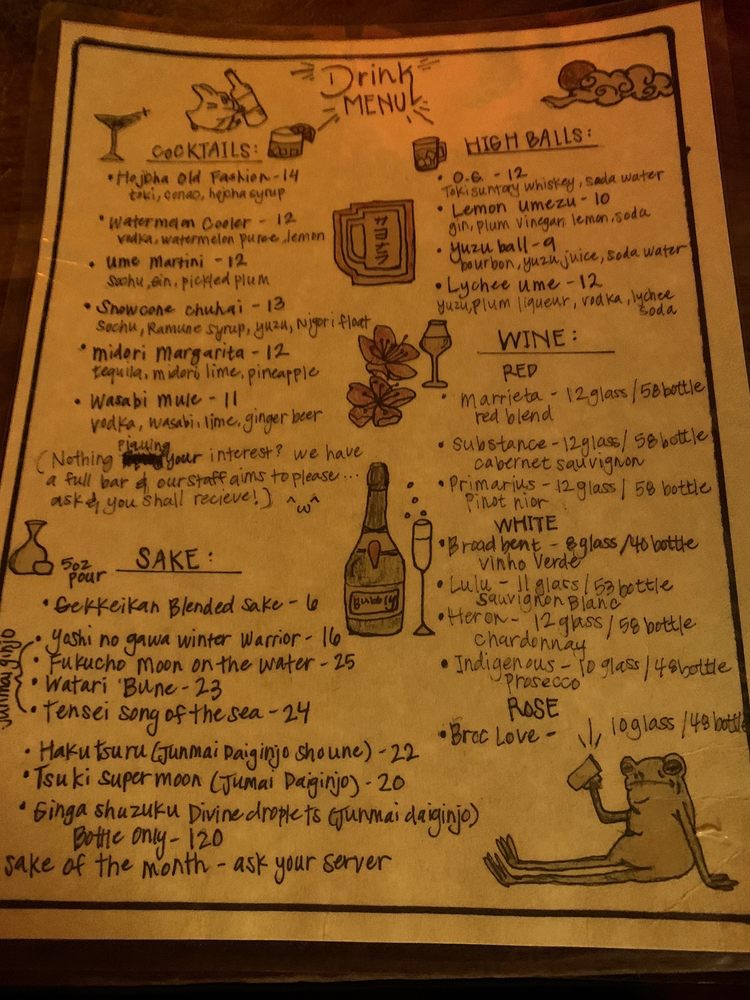 Drink
MENU
COCKTAILS:
• Hojbha Old Fashion - 14
toki, hojcha syrup
• Watermelon Cooler - 12
vodka, watermelon puree, lemon
• ume Martini - 12
Sochu, Gin, pickled plum
• Snowcone chuhai - 13
Sochu, Ramune syrup, yuzu, Nigori float
• midori Margarita - 12
tequila, midori, lime, pineapple
• Wasabi mule - 11
vodka, wasabi, lime, ginger beer
(Nothing piquing your interest? we have
a full bar & our staff aims to please...
ask & you shall recieve!) ^ω^
SAKE:
5oz
pour
• Gekkeikan Blended Sake - 6
• Yoshi no gawa winter Warrior - 16
• Fukucho Moon on the water - 25
• Watari Bune - 23
• Tensei song of the sea - 24
Junmai Ginjo
• Hakutsuru (Junmai Daiginjo shoune) - 22
• Tsuki super moon (Jumai Daiginjo) - 20
• Ginga shuzuku Divine droplets (Junmai daiginjo)
Bottle only - 120
sake of the month - ask your server
サヨナラ
Bubbly
HIGH BALLS:
• O.G. - 12
Toki suntory whiskey, soda water
• Lemon umezu - 10
gin, plum vinegar, lemon, soda
• yuzu ball - 9
bourbon, yuzu juice, soda water
• Lychee ume - 12
yuzu, plum liqueur, vodka, lychee
soda
WINE:
RED
• Marrieta - 12 glass / 58 bottle
red blend
• Substance - 12 glass / 58 bottle
cabernet sauvignon
• Primarius - 12 glass / 58 bottle
Pinot nior
WHITE
• Broadbent - 8 glass / 40 bottle
vinho Verde
• Lulu - 11 glass / 53 bottle
Sauvignon Blanc
• Heron - 12 glass / 58 bottle
chardonnay
• Indigenous - 10 glass / 48 bottle
prosecco
ROSE
• Broc Love - 10 glass / 48 bottle